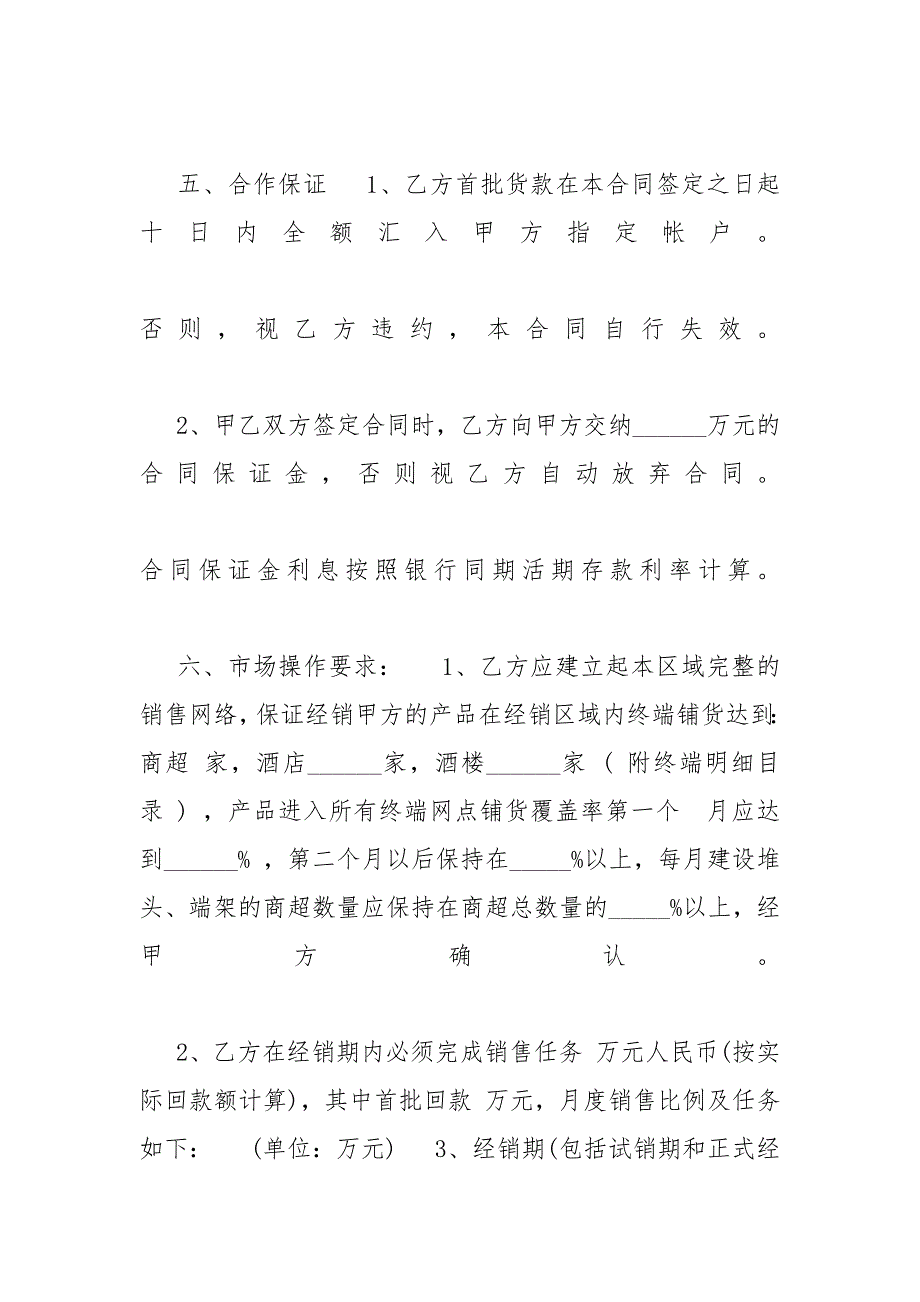 五、合作保证 1、乙方首批货款在本合同签定之日起
十日内全额汇入甲方指定帐户。
否则，视乙方违约，本合同自行失效。
2、甲乙双方签定合同时，乙方向甲方交纳______万元的
合同保证金，否则视乙方自动放弃合同。
合同保证金利息按照银行同期活期存款利率计算。
六、市场操作要求： 1、乙方应建立起本区域完整的
销售网络，保证经销甲方的产品在经销区域内终端铺货达到：
商超 家，酒店______家，酒楼______家（附终端明细目
录），产品进入所有终端网点铺货覆盖率第一个 月应达
到______%，第二个月以后保持在_____%以上，每月建设堆
头、端架的商超数量应保持在商超总数量的_____%以上，经
甲方确认。
2、乙方在经销期内必须完成销售任务 万元人民币(按实
际回款额计算)，其中首批回款 万元，月度销售比例及任务
如下： (单位：万元) 3、经销期(包括试销期和正式经